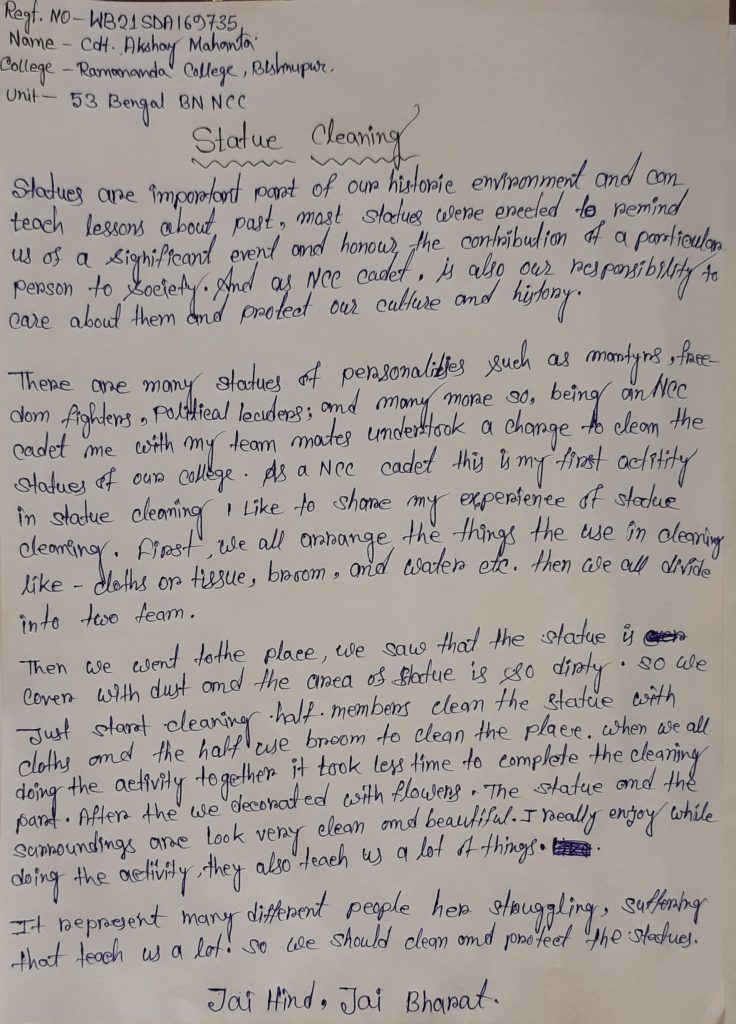 Regt. NO - WB21SDA169735
Name - Cdt. Akshay Mahanta
College - Ramananda College, Bishnupur.
Unit - 53 Bengal BN NCC
Statue Cleaning
Statues are important part of our historic environment and can
teach lessons about past, most statues were erected to remind
us of a significant event and honour the contribution of a particular
person to society. And as NCC cadet, is also our responsibility to
care about them and protect our culture and history.
There are many statues of personalities such as martyrs, free-
dom fighters, political leaders; and many more so, being an NCC
cadet me with my team mates undertook a change to clean the
statues of our college. As a NCC cadet this is my first actitity
in statue cleaning I Like to share my experience of statue
cleaning. First, we all arrange the things the use in cleaning
like - cloths or tissue, broom, and water etc. then we all divide
into two team.
Then we went tothe place, we saw that the statue is
cover with dust and the area of statue is so dirty. so we
Just start cleaning. half members clean the statue with
cloths and the half use broom to clean the place. when we all
doing the activity together it took less time to complete the cleaning
part. After the we decorated with flowers. The statue and the
surroundings are look very clean and beautiful. I really enjoy while
doing the activity, they also teach us a lot of things.
It represent many different people her struggling, suffering
that teach us a lot. so we should clean and protect the statues.
Jai Hind, Jai Bharat.